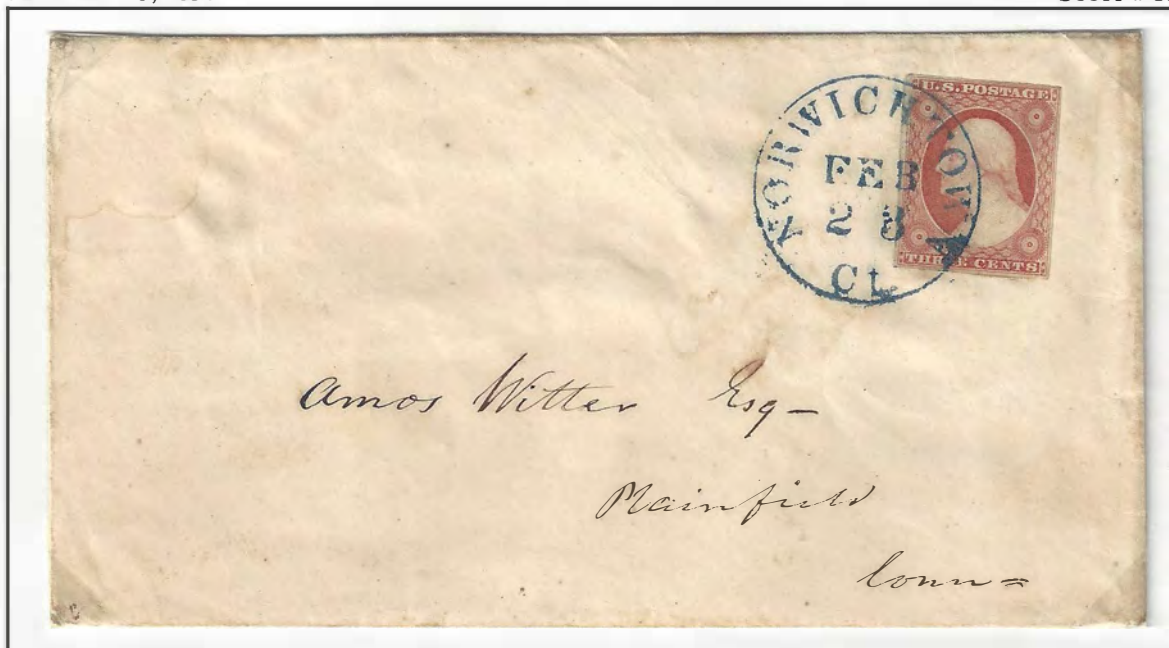 NORWICH TOWN
FEB
23
CT.
U.S. POSTAGE
THREE CENTS
Amos Witter Esq-
Plainfield
Conn=